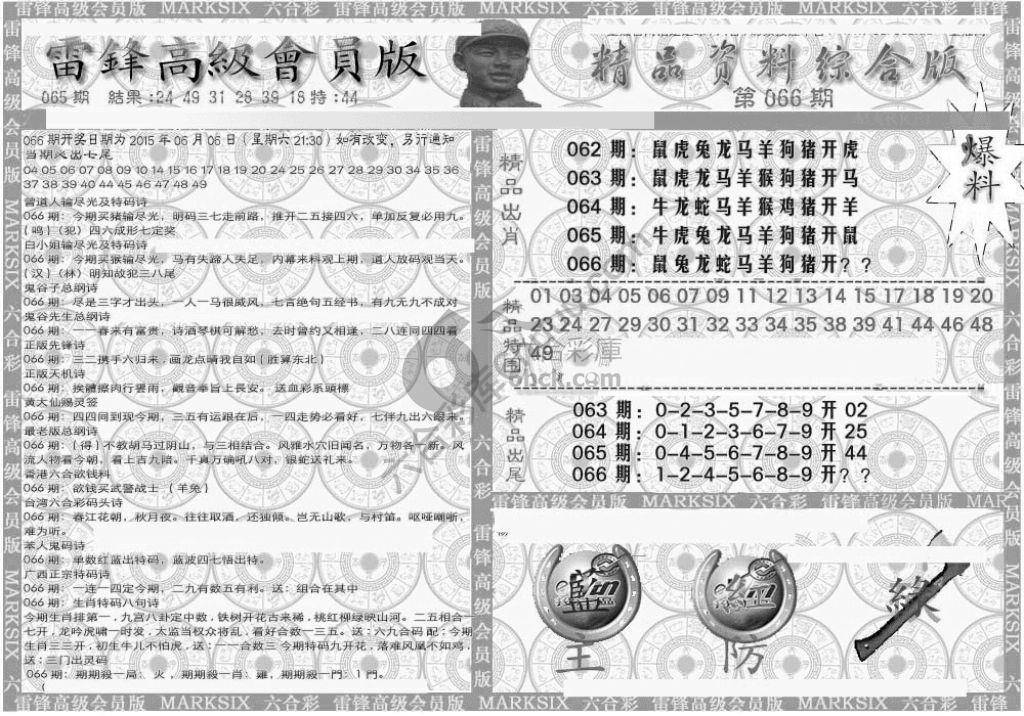 雷锋高级会员版 MARKSIX 六合彩 雷锋高级会员版 MARKSIX 六合彩 雷锋高级会员版 MARKSIX 六合彩 雷锋
雷鋒高級會員版
精品资料综合版
065期 結果:24 49 31 28 39 18特:44
第066期
066 期开奖日期为 2015 年 06 月 06 日（星期六 21:30）如有改变，另行通知
当期火出七尾
04 05 06 07 08 09 10 14 15 16 17 18 19 20 24 25 26 27 28 29 30 34 35 36
37 38 39 40 44 45 46 47 48 49
曾道人输尽光及特码诗
066 期：今期买猪输尽光，明码三七走前路，推开二五接四六，单加反复必用九。
（鸣）（犯）四六成形七定奖
白小姐输尽光及特码诗
066 期：今期买猴输尽光，马有失蹄人失足，内幕来料观上期，道人放码观当天。
（汉）（林）明知故犯三八尾
鬼谷子总纲诗
066 期：尽是三字才出头，一人一马很威风，七言绝句五经书，有九无九不成对
鬼谷先生总纲诗
066 期：一一春来有富贵，诗酒琴棋可解愁，去时曾约又相逢，二八连同四四看
正版先锋诗
066 期：三二携手六归来，画龙点睛我自如（胜算东北）
正版天机诗
066 期：挨體擦肉行雲雨，觀音奉旨上長安。送血彩系頭標
黄大仙赐灵签
066 期：四四同到现今期，三五有运跟在后，一四走势必看好，七伴九出六跟来。
最老版总纲诗
066 期：（得）不教胡马过阴山，与三相结合。风雅水穴旧闻名，万物各一新。风
流人物看今朝，看上吉九陪。千真万确吼八对，银蛇送礼来。
香港六合欲钱料
066 期：欲钱买武警战士 （羊兔）
台湾六合彩码头诗
066 期：春江花朝，秋月夜。往往取酒，还独倾。岂无山歌，与村笛。呕哑嘲哳，
难为听。
笨人鬼码诗
066 期：单数红蓝出特码，蓝波四七悟出特。
广西正宗特码诗
066 期：一连一四定今期，二九有数五有利。送：组合在其中
066 期：生肖特码八句诗
今期生肖排第一，九宫八卦定中数，铁树开花古来稀，桃红柳绿映山河。二五相合
七开，龙吟虎啸一时发，太监当权众将乱，看好合数一三五。送：六九合码 配：今期
生肖三三开，初生牛儿不怕虎，送：一一合数三 今期特码九开花，落难凤凰不如鸡，
送：三门出灵码
066 期：期期殺一局： 火 ，期期殺一肖：雞，期期殺一門：1 門。
（
雷锋高级会员版 MARKSIX 六合彩
精品出肖
062 期：鼠虎兔龙马羊狗猪开虎
063 期：鼠虎龙马羊猴狗猪开马
064 期：牛龙蛇马羊猴鸡猪开羊
065 期：牛虎兔龙马羊狗猪开鼠
066 期：鼠兔龙蛇马羊狗猪开？？
爆料
精品特围
01 03 04 05 06 07 09 11 12 13 14 15 17 18 19 20
23 24 27 29 30 31 32 33 34 35 38 39 41 44 46 48
49
六合彩庫
6hck.com
精品出尾
063 期：0-2-3-5-7-8-9 开 02
064 期：0-1-2-3-6-7-9 开 25
065 期：0-4-5-6-7-8-9 开 44
066 期：1-2-4-5-6-8-9 开？？
雷锋高级会员版 MARKSIX 六合彩 雷锋高级会员版 MARKSIX
藍
綠
主
防
雷锋高级会员版 MARKSIX 六合彩 雷锋高级会员版 MARKSIX 六合彩 雷锋高级会员版 MARKSIX 六合彩 雷锋